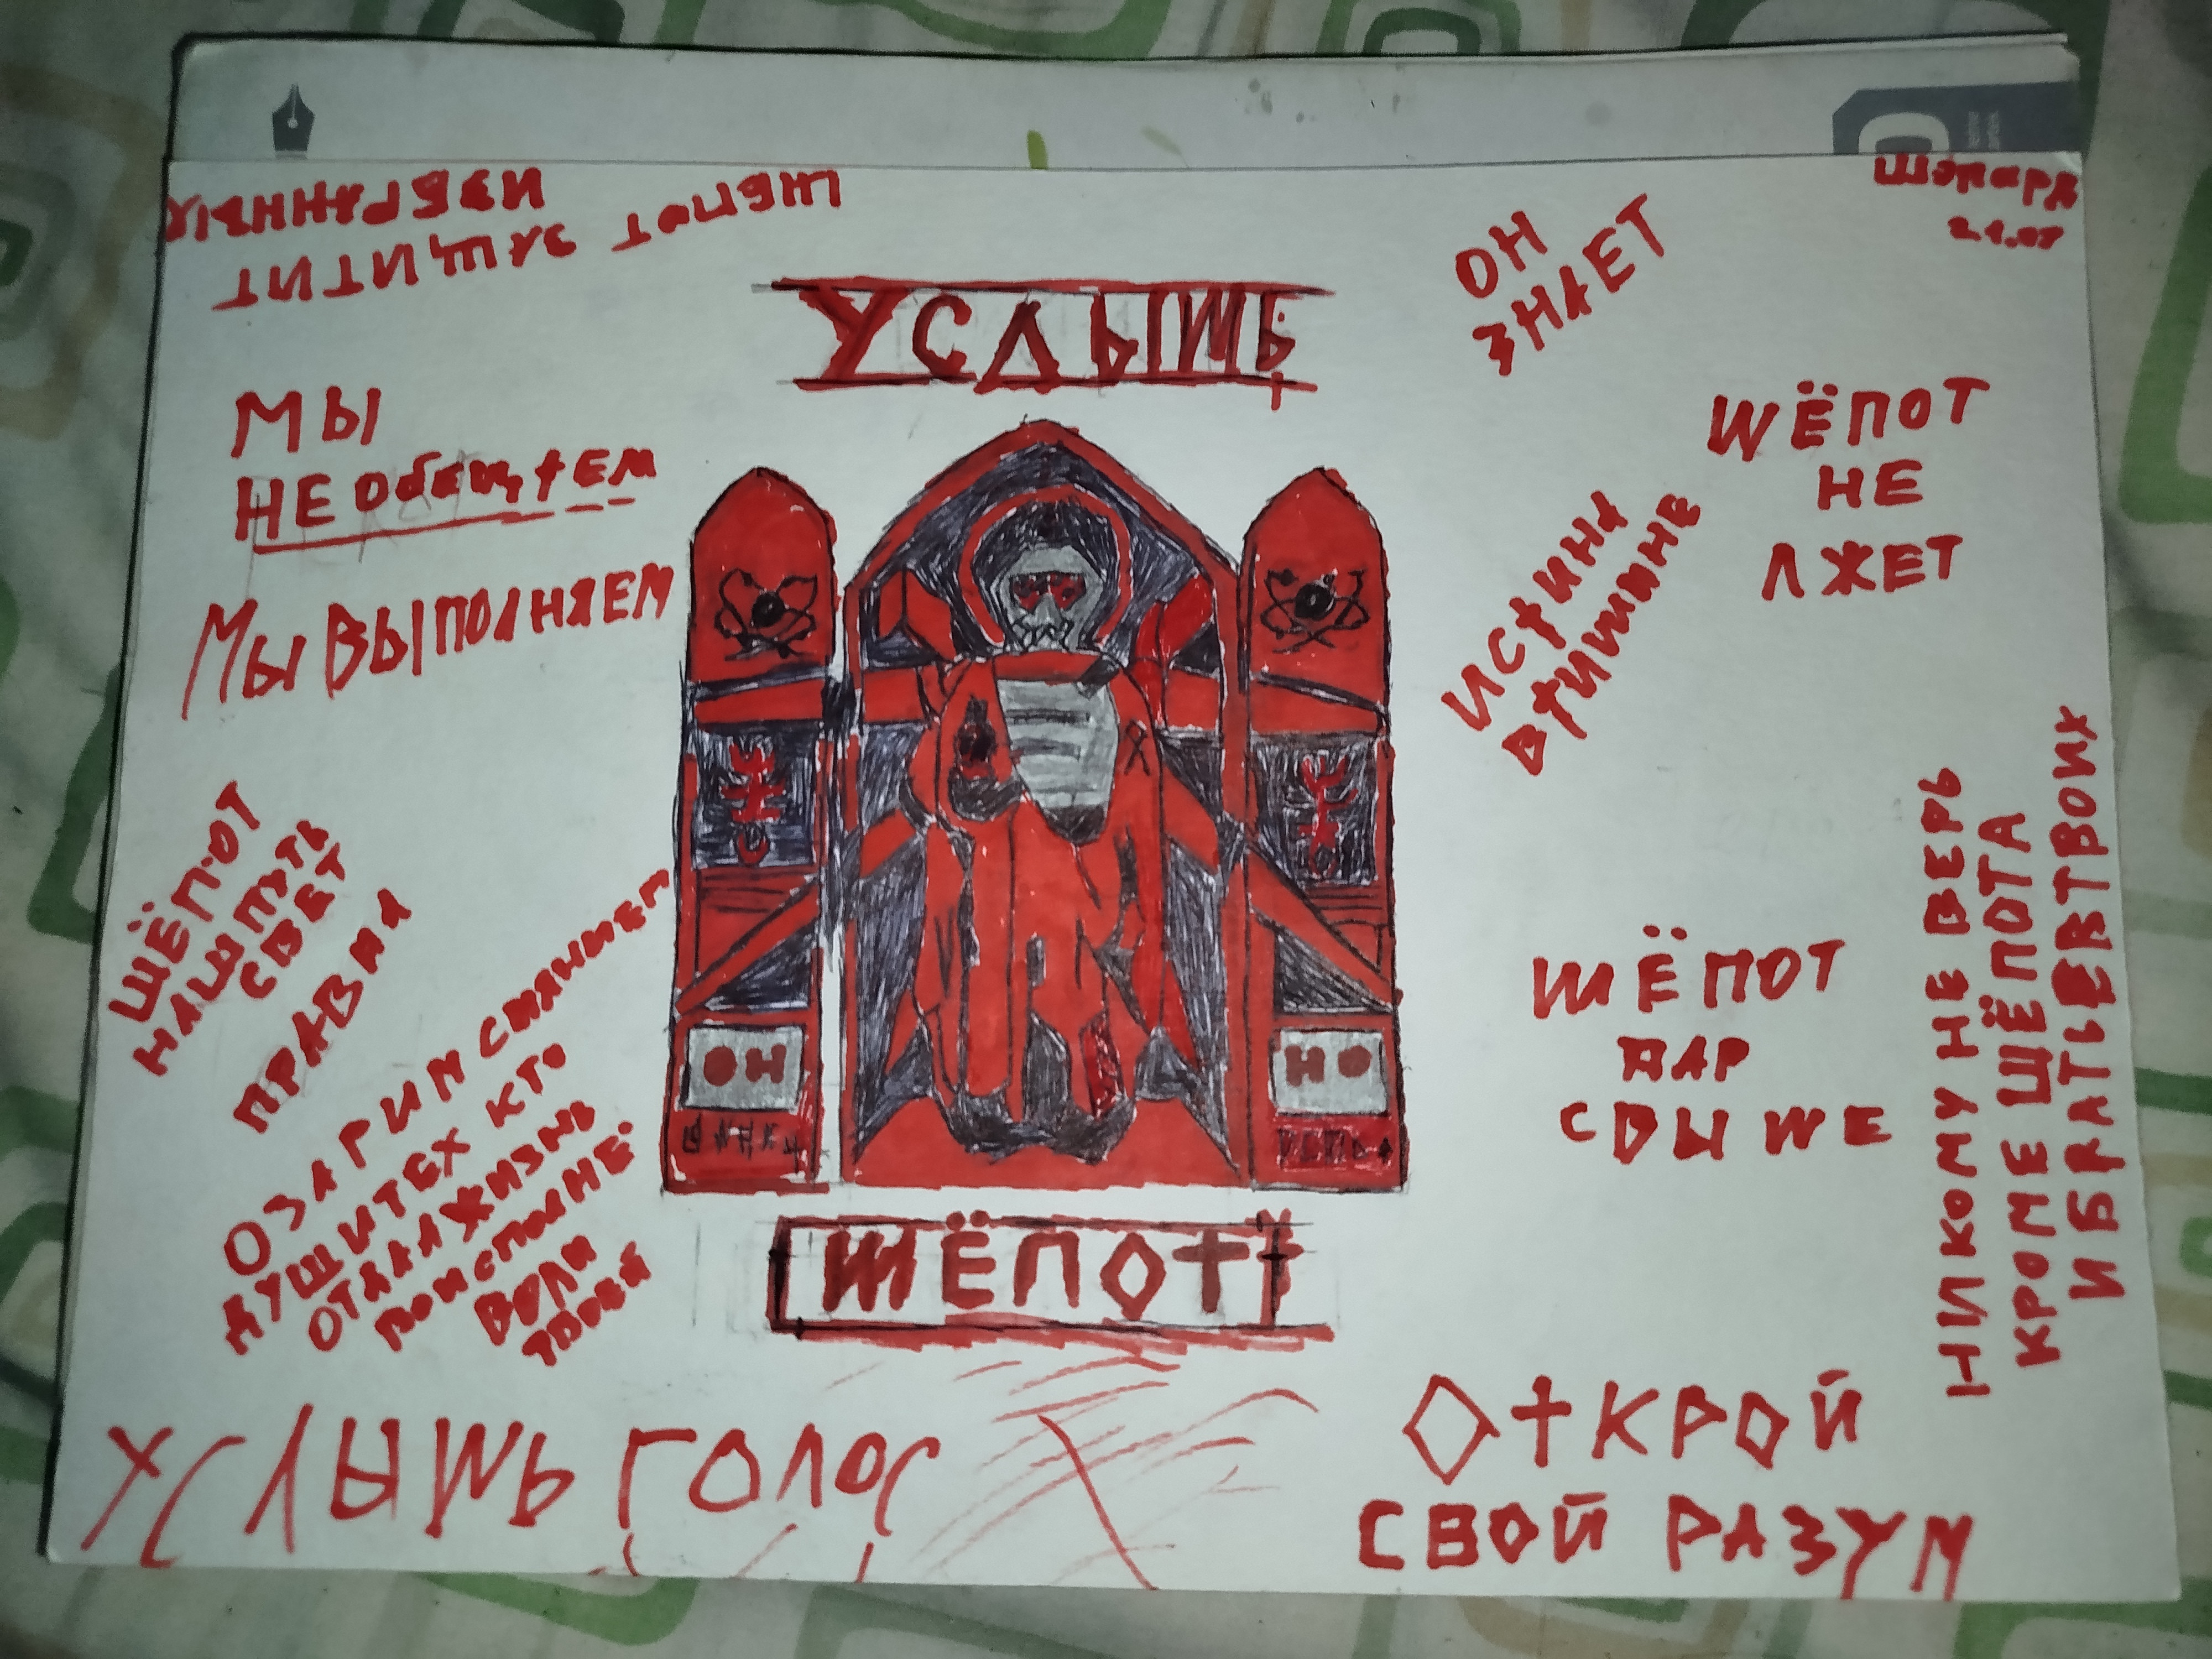 ШЁПОТ
ЗАЩИТИТ
ИЗБРАННЫХ
Шэпард
УСЛЫШЬ
ОН
ЗНАЕТ
МЫ
НЕ обещаем
МЫ ВЫПОЛНЯЕМ
ШЁПОТ
НЕ
ЛЖЕТ
ИСТИНА
В ТИШИНЕ
ШЁПОТ
НАШ ПУТЬ
СВЕТ
ПРАВДА
ОЗАРИМ СИЯНИЕМ
ДУШИ ТЕХ КТО
ОТДАЛ ЖИЗНЬ
ВО ИСПОЛНЕ.
ВОЛИ
ТВОЕЙ
ОН
НО
ШЁПОТ
ДАР
СВЫШЕ
НИКОМУ НЕ ВЕРЬ
КРОМЕ ШЁПОТА
И БРАТЬЕВ ТВОИХ
ШЁПОТ
УСЛЫШЬ ГОЛОС
ОТКРОЙ
СВОЙ РАЗУМ